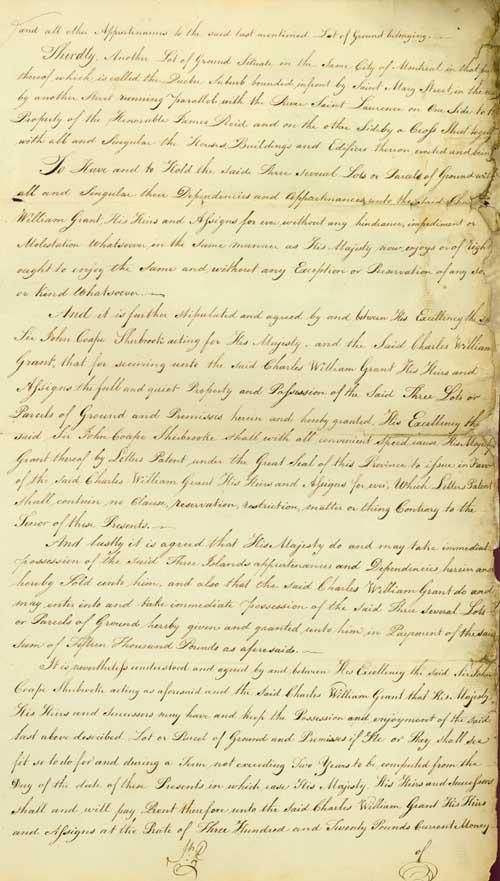 and all other Appurtenances to the said last mentioned Lot of Ground belonging.
Thirdly. Another Lot of Ground Situate in the Same City of Montreal in that
thereof which is called the Quebec Suburb bounded infront by Saint Mary Street, in the
by another Street running parallel with the River Saint Laurence on One Side to
Property of the Honorable James Reid and on the other Side by a Cross Street
with all and Singular the Houses, Buildings and Edifices thereon erected and being
To Have and to Hold the said Three several Lots or Parcels of Ground with
all and Singular their Dependencies and Appurtenances, unto the Said
William Grant, His Heirs and Assigns for ever without any hindrance, impediment or
Molestation Whatsoever, in the Same manner as His Majesty now enjoys or of Right
ought to enjoy the Same and without any Exception or Reservation of any
or Kind Whatsoever
And it is further Stipulated and agreed by and between His Excellency the
Sir John Coape Sherbrooke acting for His Majesty and the Said Charles William
Grant, that for securing unto the said Charles William Grant His Heirs and
Assigns the full and quiet Property and Possession of the Said Three Lots or
Parcels of Ground and Premisses herein and hereby granted, His Excellency the
said Sir John Coape Sherbrooke shall with all convenient Speed cause His Majestys
Grant thereof by Letters Patent under the Great Seal of this Province to issue in Favor
of the Said Charles William Grant His Heirs and Assigns for ever, Which Letters Patent
Shall contain no Clause, reservation, restriction, matter or thing Contrary to the
Tenor of these Presents.
And lastly it is agreed that His Majesty do and may take immediate
possession of the Said Three Islands appurtenances and Dependencies herein and
hereby Sold unto him, and also that the said Charles William Grant do and
may enter into and take immediate possession of the Said Three several Lots
or Parcels of Ground hereby given and granted unto him in Payment of the said
Sum of Fifteen Thousand Pounds as aforesaid.
It is nevertheless understood and agreed by and between His Excellency the said Sir John
Coape Sherbrooke acting as aforesaid and the Said Charles William Grant that His Majesty
His Heirs and Successors may have and keep the Possession and enjoyment of the said
last above described Lot or Parcel of Ground and Premisses if He or They shall see
fit so to do for and during a Term not exceeding Two Years to be computed from the
Day of the date of these Presents, in which case His Majesty His Heirs and Successors
Shall and will pay Rent therefore unto the Said Charles William Grant His Heirs
and Assigns at the Rate of Three Hundred and Twenty Pounds Current Money
of